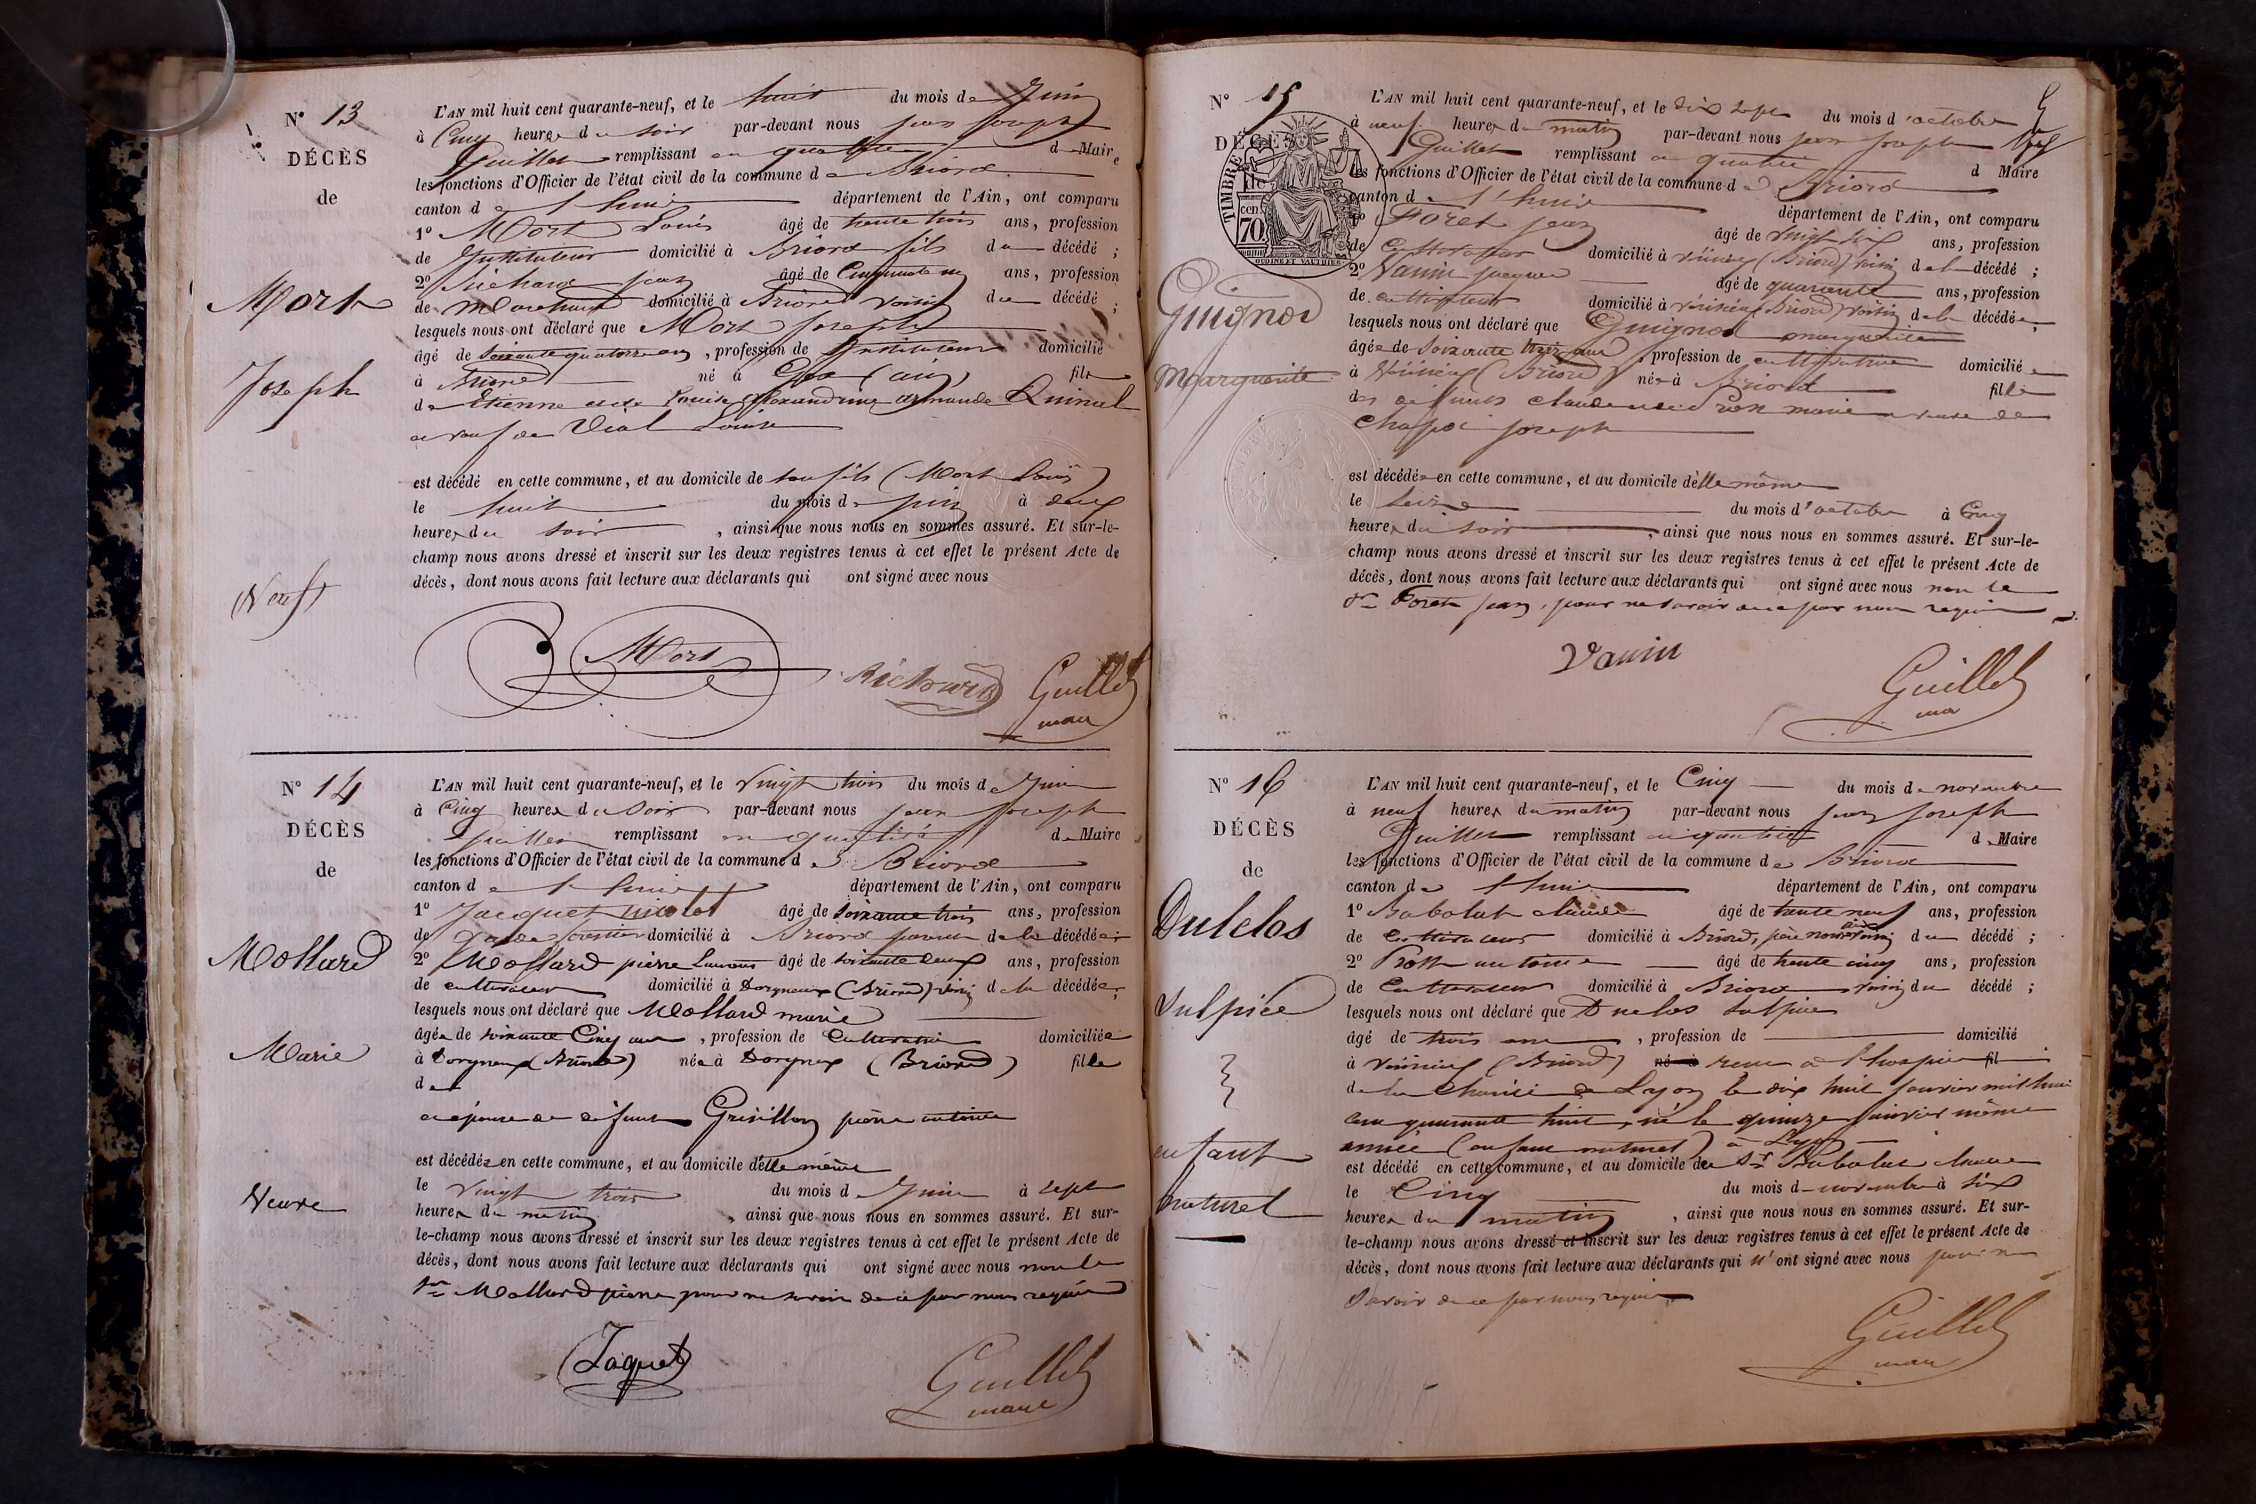 N° 13
DÉCÈS
de
Mort
Joseph
(Veuf)
L'AN mil huit cent quarante-neuf, et le huit du mois de Juin
à Cinq heures du soir par-devant nous jean joseph
Guillet remplissant en qualité de Maire
les fonctions d'Officier de l'état civil de la commune de Briord
canton de département de l'Ain, ont comparu
1° Mort Louis âgé de trente trois ans, profession
de Instituteur domicilié à Briord fils du décédé ;
2° Richard jean âgé de Cinquante ans, profession
de domicilié à Briord voisin du décédé ;
lesquels nous ont déclaré que Mort Joseph
âgé de soixante quatorze ans, profession de Instituteur domicilié
à Briord né à Gex (ain) fils
de Etienne et de Louise Alexandrine Armande Quinel
et veuf de Vial Louise
est décédé en cette commune, et au domicile de son fils (Mort Louis)
le huit du mois de juin à deux
heures du soir, ainsi que nous nous en sommes assuré. Et sur-le-
champ nous avons dressé et inscrit sur les deux registres tenus à cet effet le présent Acte de
décès, dont nous avons fait lecture aux déclarants qui ont signé avec nous
Mort Richard Guillet
maire
N° 14
DÉCÈS
de
Mollard
Marie
Veuve
L'AN mil huit cent quarante-neuf, et le Vingt trois du mois de Juin
à Cinq heures du soir par-devant nous jean joseph
Guillet remplissant en qualité de Maire
les fonctions d'Officier de l'état civil de la commune de Briord
canton de département de l'Ain, ont comparu
1° Jacquet âgé de soixante trois ans, profession
de Garde forestier domicilié à Briord parent de la décédée
2° Mollard pierre Laurent âgé de soixante deux ans, profession
de cultivateur domicilié à Dorgneux (Briord) voisin de la décédée,
lesquels nous ont déclaré que Mollard marie
âgée de soixante Cinq ans, profession de Cultivatrice domiciliée
à Dorgneux (Briord) née à Dorgneux (Briord) fille
de
et épouse de défunt Grisillon pierre antoine
est décédée en cette commune, et au domicile d'elle même
le vingt trois du mois de Juin à sept
heures du matin, ainsi que nous nous en sommes assuré. Et sur-
le-champ nous avons dressé et inscrit sur les deux registres tenus à cet effet le présent Acte de
décès, dont nous avons fait lecture aux déclarants qui ont signé avec nous non le
Sr Mollard pierre pour ne savoir de ce par nous requis
Jaquet Guillet
maire
N° 15
DÉCÈS
de
TIMBRE
cen
70
OUDINE ET VAUTHIER
Guignod
Marguerite
L'AN mil huit cent quarante-neuf, et le dix sept du mois d'octobre
à neuf heures du matin par-devant nous jean joseph
Guillet remplissant en qualité d Maire
les fonctions d'Officier de l'état civil de la commune de Briord
canton de département de l'Ain, ont comparu
1° Foret jean âgé de vingt six ans, profession
de Cultivateur domicilié à (Briord) voisin de la décédé ;
2° Vanin Jacques âgé de quarante ans, profession
de cultivateur domicilié à (Briord) voisin de la décédée,
lesquels nous ont déclaré que Guignod marguerite
âgée de soixante treize ans, profession de cultivatrice domiciliée
à (Briord) née à Briord fille
des défunts claude et de marie veuve de
joseph
est décédée en cette commune, et au domicile d'elle même
le seize du mois d'octobre à Cinq
heures du soir, ainsi que nous nous en sommes assuré. Et sur-le-
champ nous avons dressé et inscrit sur les deux registres tenus à cet effet le présent Acte de
décès, dont nous avons fait lecture aux déclarants qui ont signé avec nous non le
Sr Foret jean, pour ne savoir de ce par nous requis
Vanin Guillet
N° 16
DÉCÈS
de
Dulclos
Sulpice
enfant
naturel
L'AN mil huit cent quarante-neuf, et le Cinq du mois de novembre
à neuf heures du matin par-devant nous jean joseph
Guillet remplissant en qualité de Maire
les fonctions d'Officier de l'état civil de la commune de Briord
canton de département de l'Ain, ont comparu
1° Babolat claude âgé de trente neuf ans, profession
de Cultivateur domicilié à Briord, père du décédé ;
2° antoine âgé de trente cinq ans, profession
de Cultivateur domicilié à Briord voisin du décédé ;
lesquels nous ont déclaré que Duclos Sulpice
âgé de trois ans, profession de domicilié
à (Briord) né à remis a l'hospice fil
de la Charité de Lyon le dix huit janvier mil huit
cent quarante huit, né le quinze janvier même
année (enfant naturel) à Lyon
est décédé en cette commune, et au domicile de Sr Babolat claude
le Cinq du mois de novembre à six
heures du matin, ainsi que nous nous en sommes assuré. Et sur-
le-champ nous avons dressé et inscrit sur les deux registres tenus à cet effet le présent Acte de
décès, dont nous avons fait lecture aux déclarants qui n'ont signé avec nous pour ne
savoir de ce par nous requis
Guillet
maire